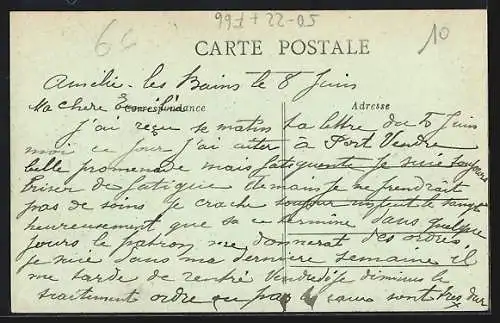 66
997 + 22-05
10
CARTE POSTALE
Amélie-les Bains le 8 Juin
Ma chere
Correspondance
Adresse
J'ai reçu se matin ta lettre du 5 Juin
moi ce jour j'ai aitér à Port Vendre
belle promenade mais fatiguente je suis toujours
briser de fatigue demain je ne prendrait
pas de soins je crache toujour un peut le sang
heureusement que sa termine dans quelque
jours le patron me donnerat des ordres
je suis dans ma derniere semaine il
me tarde de rentré Vendredi je diminus le
traitement ordre ou pas
sont tres dur